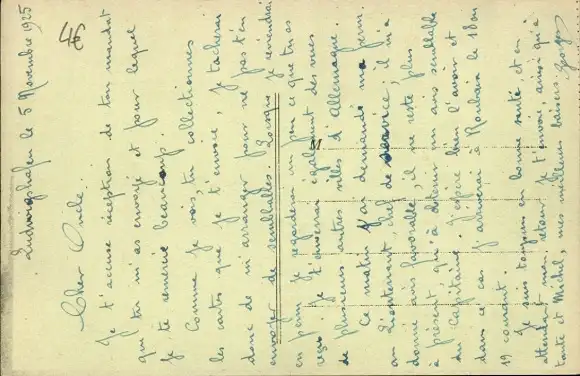 Ludwigshafen le 5 Novembre 1925
Cher Oncle
Je t'accuse réception de ton mandat
que tu m'as envoyé et pour lequel
je te remercie beaucoup.
Comme je vois, tu collectionnes
les cartes que je t'envoie, je tacherai
donc de m'arranger pour ne pas t'en
envoyer de semblables. Lorsque je reviendrai
en perm je regarderai un peu ce que tu as
reçu. Je t'enverrai également des vues
de plusieurs autres villes d'Allemagne.
Ce matin j'ai demandé ma perm.
au Lieutenant, chef de service, il m'a
donné avis favorable, il ne reste plus
à présent qu'à obtenir un avis semblable
du Capitaine. J'espère bien l'avoir et
dans ce cas j'arriverai à Roubaix le 18 ou
19 courant.
Je suis toujours en bonne santé, et en
attendant mon retour je t'envoie, ainsi qu'à
tante et Michel, mes meilleurs baisers. Georges